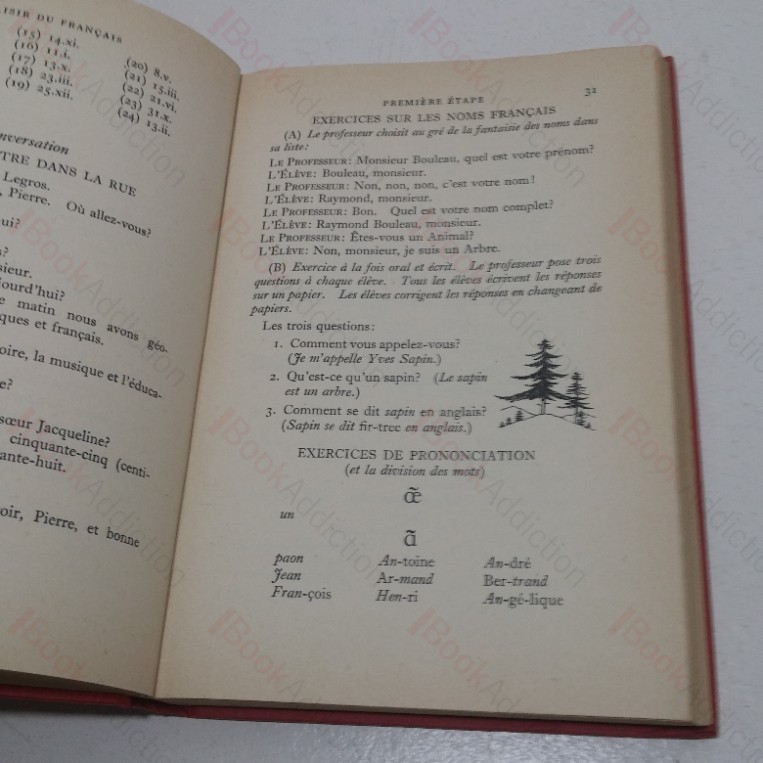 ISIR DU FRANÇAIS
(15) 14.xi.
(16) 11.i.
(17) 13.x.
(18) 23.iii.
(19) 25.xii.
(20) 8.v.
(21) 15.iii.
(22) 21.vi.
(23) 31.x.
(24) 13.ii.
nversation
TRE DANS LA RUE
Legros.
, Pierre. Où allez-vous?
hui?
?
sieur.
ujourd'hui?
e matin nous avons géo-
ques et français.
oire, la musique et l'éduca-
e?
sœur Jacqueline?
cinquante-cinq (centi-
ante-huit.
oir, Pierre, et bonne
PREMIÈRE ÉTAPE 31
EXERCICES SUR LES NOMS FRANÇAIS
(A) Le professeur choisit au gré de la fantaisie des noms dans
sa liste:
LE PROFESSEUR: Monsieur Bouleau, quel est votre prénom?
L'ÉLÈVE: Bouleau, monsieur.
LE PROFESSEUR: Non, non, non, c'est votre nom!
L'ÉLÈVE: Raymond, monsieur.
LE PROFESSEUR: Bon. Quel est votre nom complet?
L'ÉLÈVE: Raymond Bouleau, monsieur.
LE PROFESSEUR: Êtes-vous un Animal?
L'ÉLÈVE: Non, monsieur, je suis un Arbre.
(B) Exercice à la fois oral et écrit. Le professeur pose trois
questions à chaque élève. Tous les élèves écrivent les réponses
sur un papier. Les élèves corrigent les réponses en changeant de
papiers.
Les trois questions:
1. Comment vous appelez-vous?
(Je m'appelle Yves Sapin.)
2. Qu'est-ce qu'un sapin? (Le sapin
est un arbre.)
3. Comment se dit sapin en anglais?
(Sapin se dit fir-tree en anglais.)
EXERCICES DE PRONONCIATION
(et la division des mots)
œ̃
un
ɑ̃
paon An-toine An-dré
Jean Ar-mand Ber-trand
Fran-çois Hen-ri An-gé-lique
BookAddiction